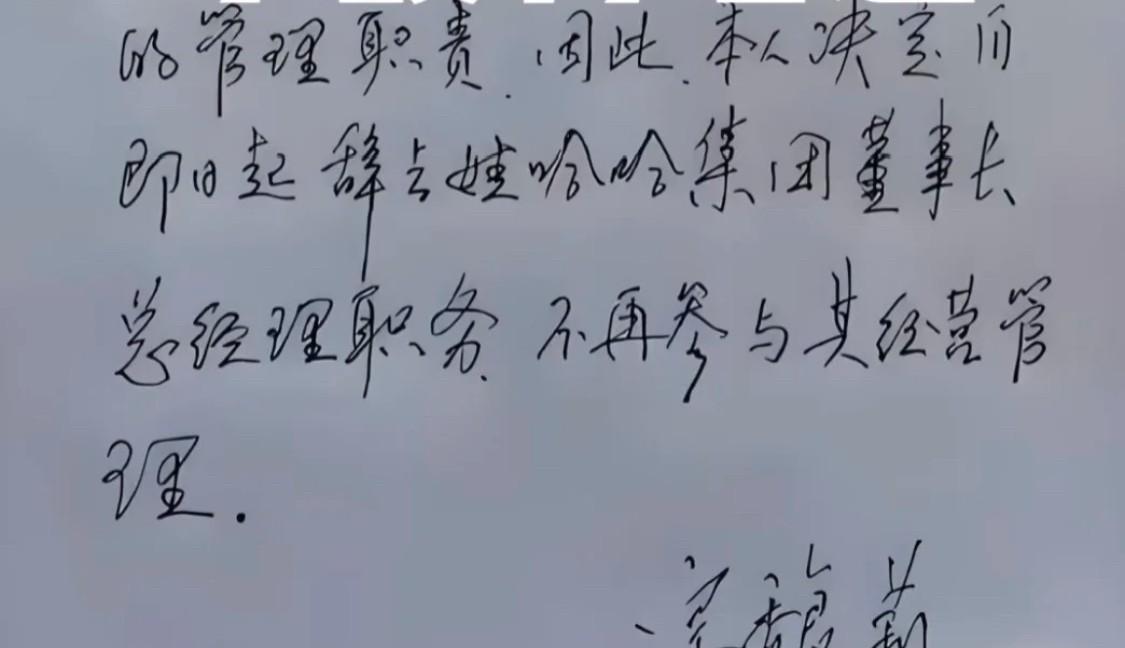 的管理职责.因此.本人决定自
即日起辞去娃哈哈集团董事长
总经理职务.不再参与其经营管
理.
宗馥莉